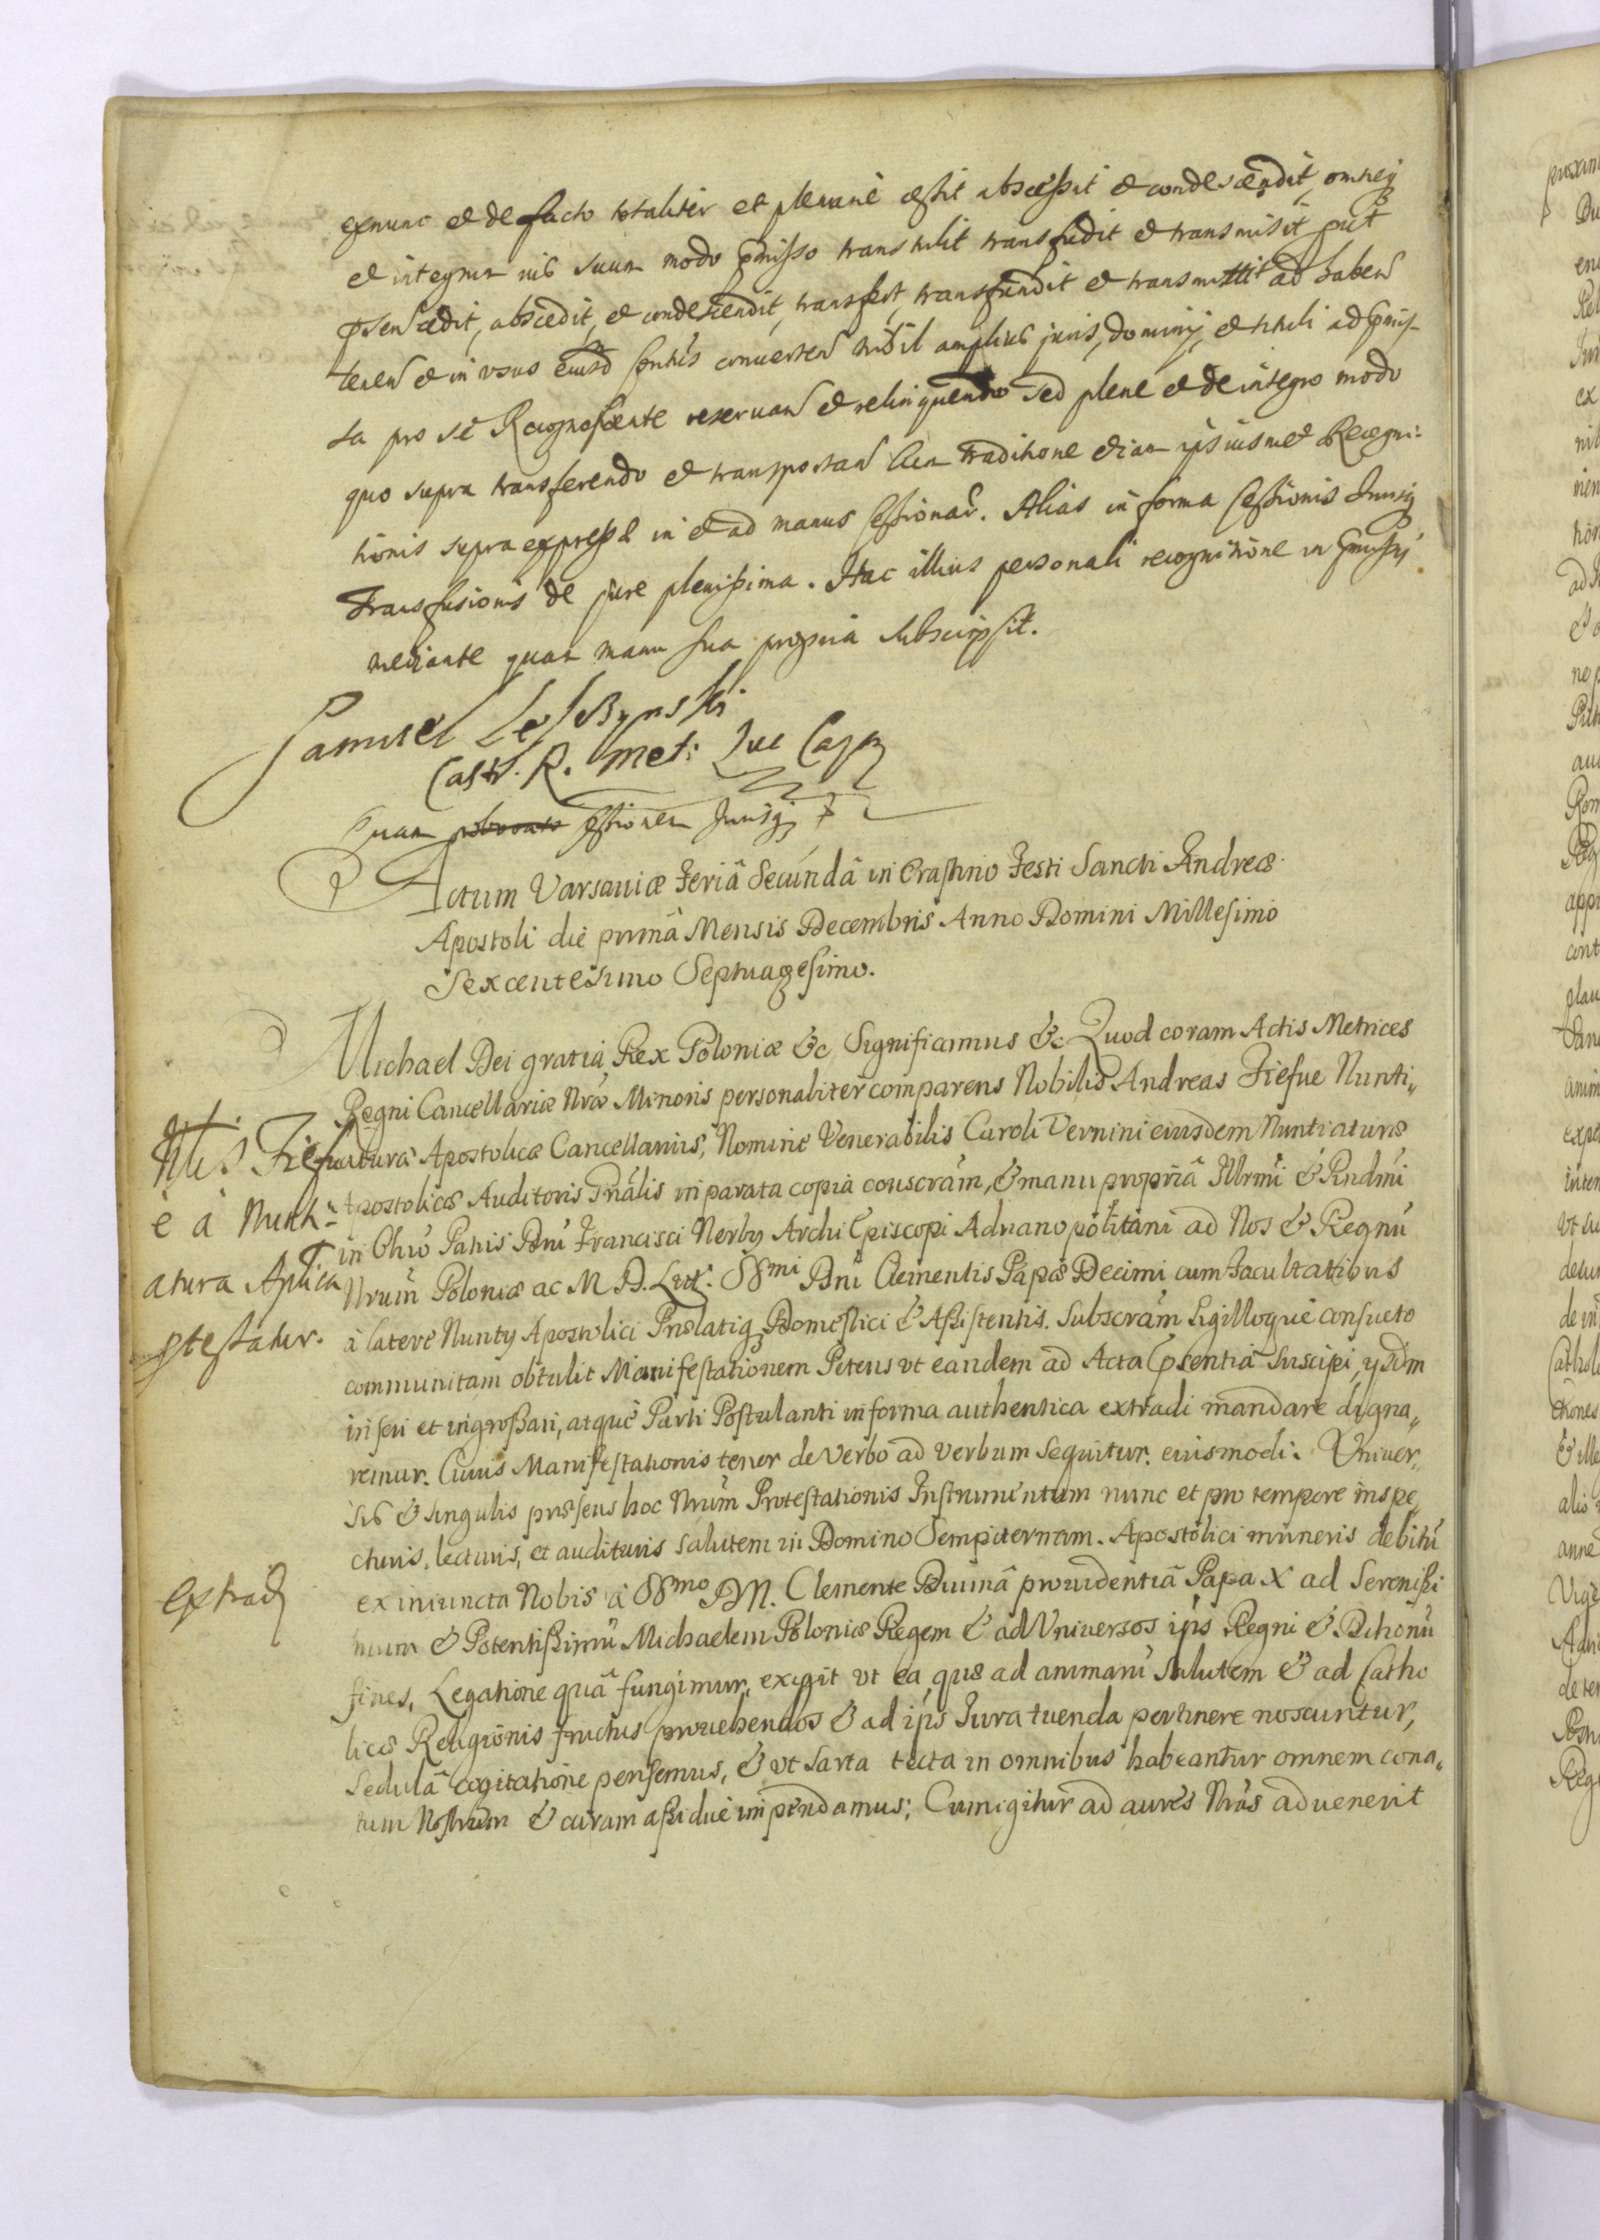 exnunc et de facto totaliter et plenarie cessit abscessit et condescendit, omneq
et integrum ius suum modo pmisso transtulit transfudit et transmisit put
psen cedit, abscedit, et condescendit, transfert, transfundit et transmittit ad haben
tenen et in usus eiusd convertен nihil amplius juris, dominij, et tituli ad pmis-
sa pro se Recognoscente reservan et relinquendo sed plene et de integro modo
quo supra transferendo et transportan cum traditione etiam ipsiusmet Recogni-
tionis supra expressæ in et ad manus Cessionar. Alias in forma Cessionis Jurisq
Transfusionis de jure plenissima. Hac illius personali recognitione in pmissis
mediante quam manu sua propria subscripsit.
Samuel Leszczynski
Castr. R. Met:
quam cessionem Jurisq
Actum Varsaviæ Feriâ Secundâ in Crastino Festi Sancti Andreæ
Apostoli die primâ Mensis Decembris Anno Domini Millesimo
Sexcentesimo Septuagesimo.
Michael Dei gratia Rex Poloniæ &c Significamus &c Quod coram Actis Metrices
Regni Cancellariæ Nræ Minoris personaliter comparens Nobilis Andreas Fiesue Nunti-
aturæ Apostolicæ Cancellarius, Nomine Venerabilis Caroli Vernini eiusdem Nuntiaturæ
Apostolicæ Auditoris Gnâlis in parata copia conscrám, & manu propriâ Illrmi & Rndmi
in Chrõ Patris Dni Francisci Nerly Archi Episcopi Adrianopolitani ad Nos & Regnũ
Nrum Poloniæ ac M. D. Litt: SSmi Dni Clementis Papæ Decimi cum Facultatibus
à latere Nuntij Apostolici Prælatiq Domestici & Assistentis. Subscrám Sigilloque consueto
communitam obtulit Manifestationem Petens vt eandem ad Acta psentiâ Suscipi, ysdm
inseri et ingrossari, atque Parti Postulanti in forma authentica extradi mandare digna-
remur. Cuius Manifestationis tenor de verbo ad verbum sequitur. eiusmodi. Univer-
sis & singulis præsens hoc Nrum Protestationis Instrumentum nunc et pro tempore inspe-
cturis, lecturis, et audituris salutem in Domino Sempiternam. Apostolici muneris debitũ
ex iniuncta Nobis à SSmo D.N. Clemente Diuinâ prouidentiâ Papa X ad Serenissi
mum & Potentissimũ Michaelem Poloniæ Regem & ad Universos ips Regni & Ditionũ
fines, Legatione quâ fungimur, exigit vt ea, quæ ad animarũ salutem & ad Catho
licæ Religionis fructus prouehendos & ad ips Jura tuenda pertinere noscuntur,
Sedulâ cogitatione pensemus, & vt sarta tecta in omnibus habeantur omnem cona-
tum Nostrum & curam assidue impendamus; Cum igitur ad aures Nrás advenerit
Nlis Fiesu-
e à Nunti-
atura Aplica
ptestatur.
extrad